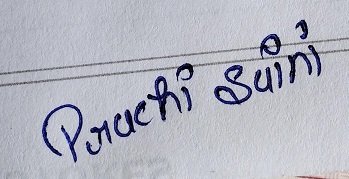 Prachi Saini